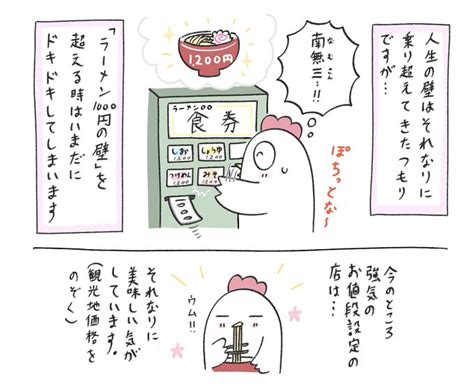 人生の壁はそれなりに
乗り超えてきたつもり
ですが…
なむさん
南無三…!!
1,200円
ラーメン〇〇
食券
しお
1200
しょうゆ
1200
つけめん
みそ
ぽちっとな〜
「ラーメン1000円の壁」を
超える時はいまだに
ドキドキしてしまいます
今のところ
強気の
お値段設定の
店は…
ウム!!
それなりに
美味しい気が
しています。
(観光地価格を
のぞく)